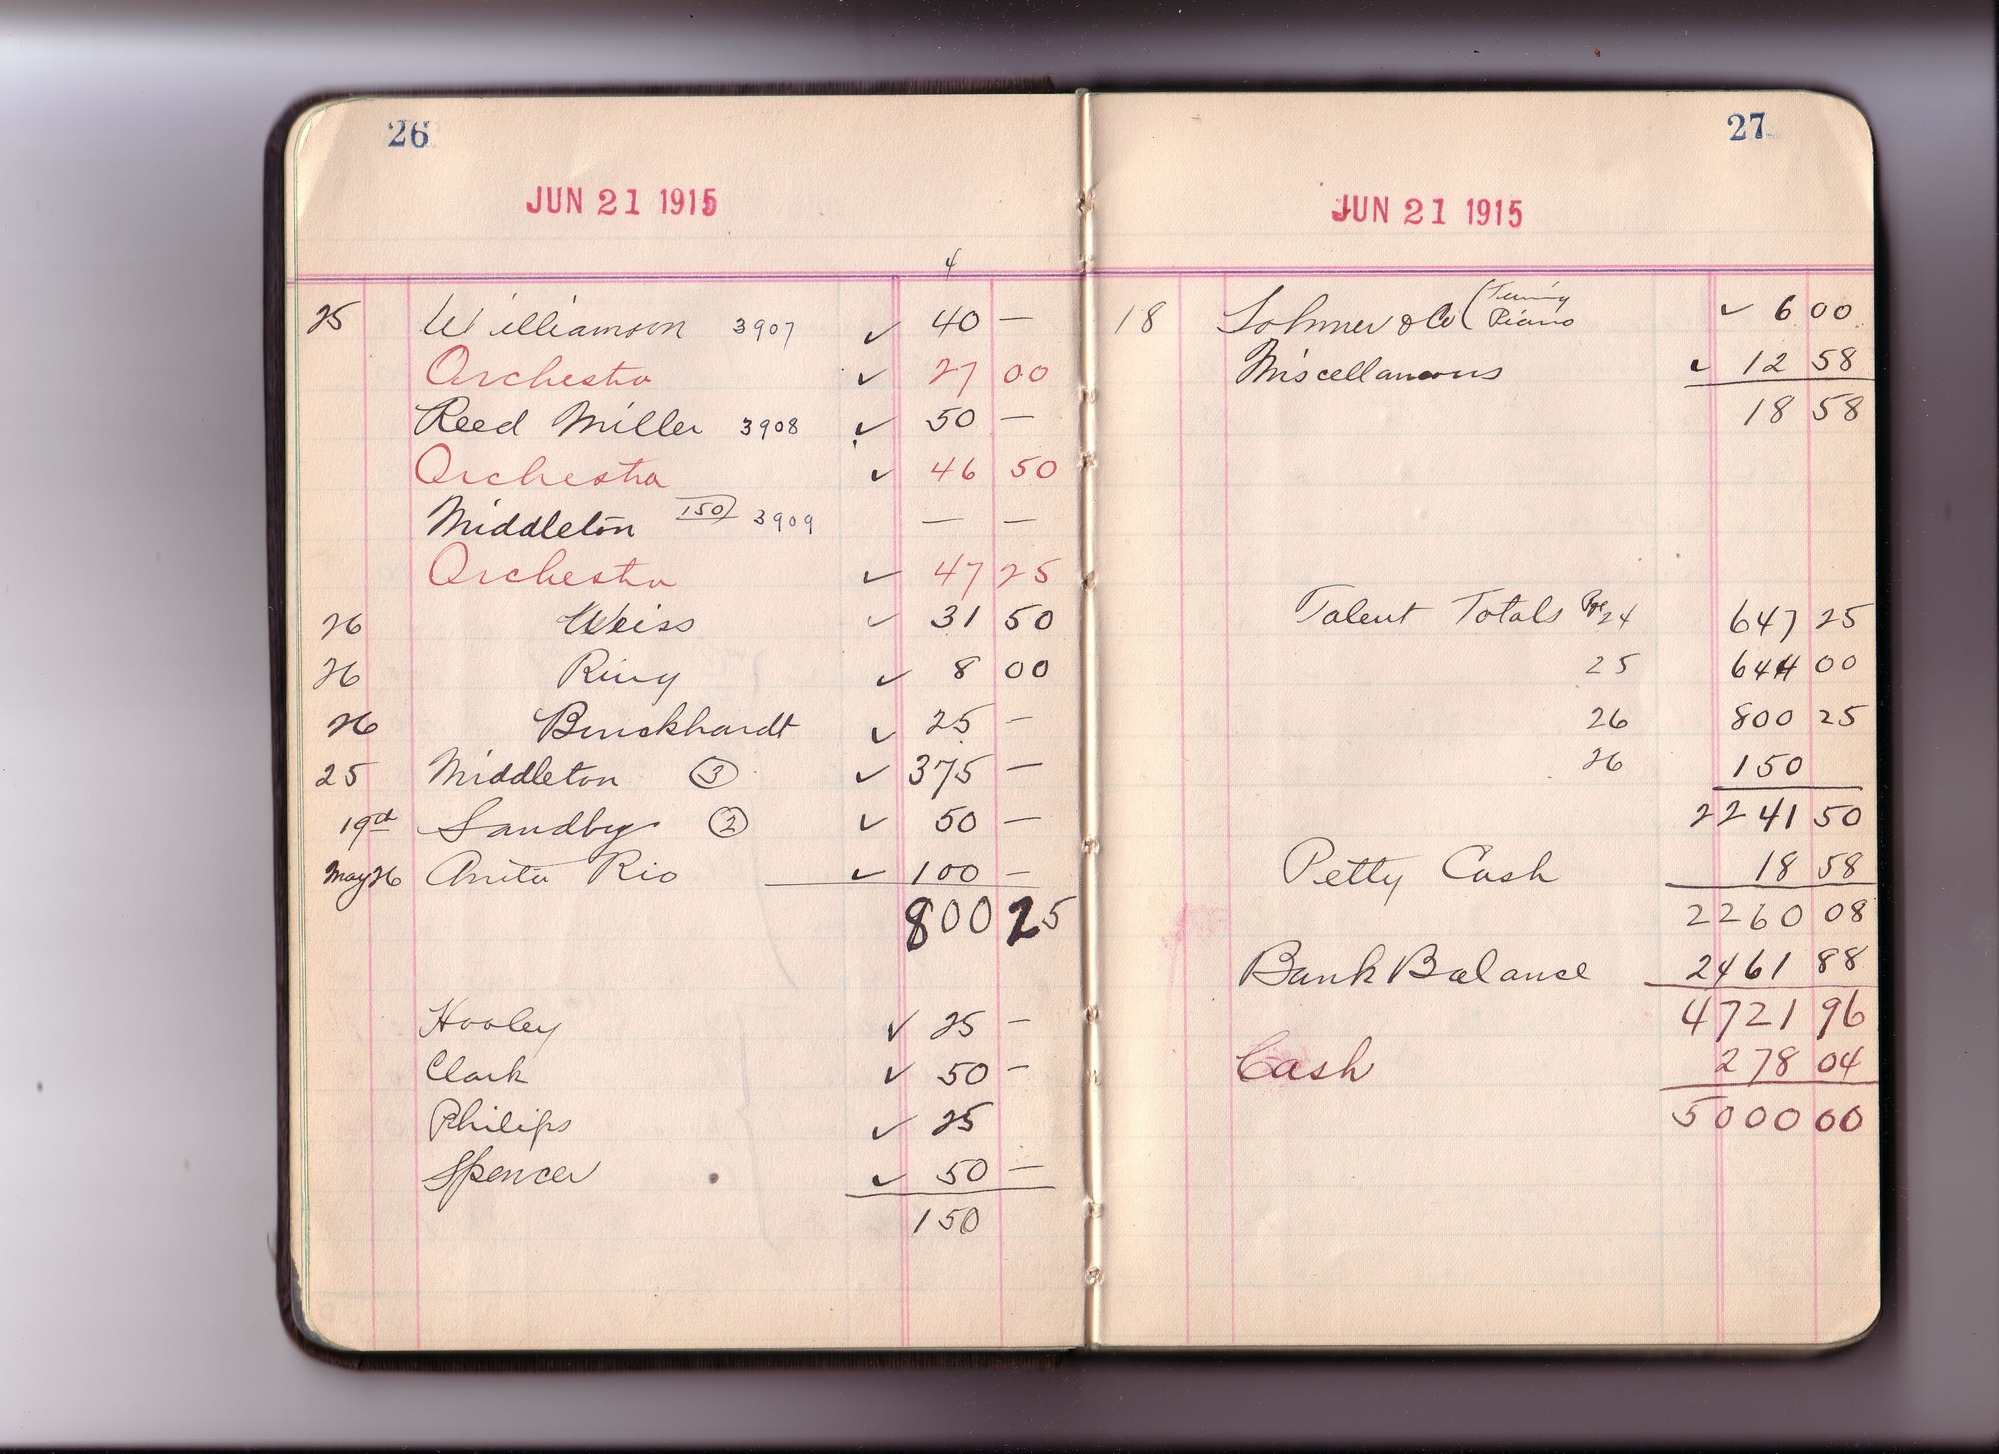 26
JUN 21 1915
4
25 Williamson 3907 ✓ 40 —
Orchestra ✓ 27 00
Reed Miller 3908 ✓ 50 —
Orchestra ✓ 46 50
Middleton 150 3909 — —
Orchestra ✓ 47 25
26 Weiss ✓ 31 50
26 Ring ✓ 8 00
26 Burckhardt ✓ 25 —
25 Middleton (3) ✓ 375 —
19th Sandby (2) ✓ 50 —
May 26 Anita Rio ✓ 100 —
800 25
Hooley ✓ 25 —
Clark ✓ 50 —
Philips ✓ 25
Spencer ✓ 50 —
150
27
JUN 21 1915
18 Sohmer & Co (Tuning Piano ✓ 6 00
Miscellaneous ✓ 12 58
18 58
Talent Totals Pge 24 647 25
25 644 00
26 800 25
26 150
2241 50
Petty Cash 18 58
2260 08
Bank Balance 2461 88
4721 96
Cash 278 04
5000 00